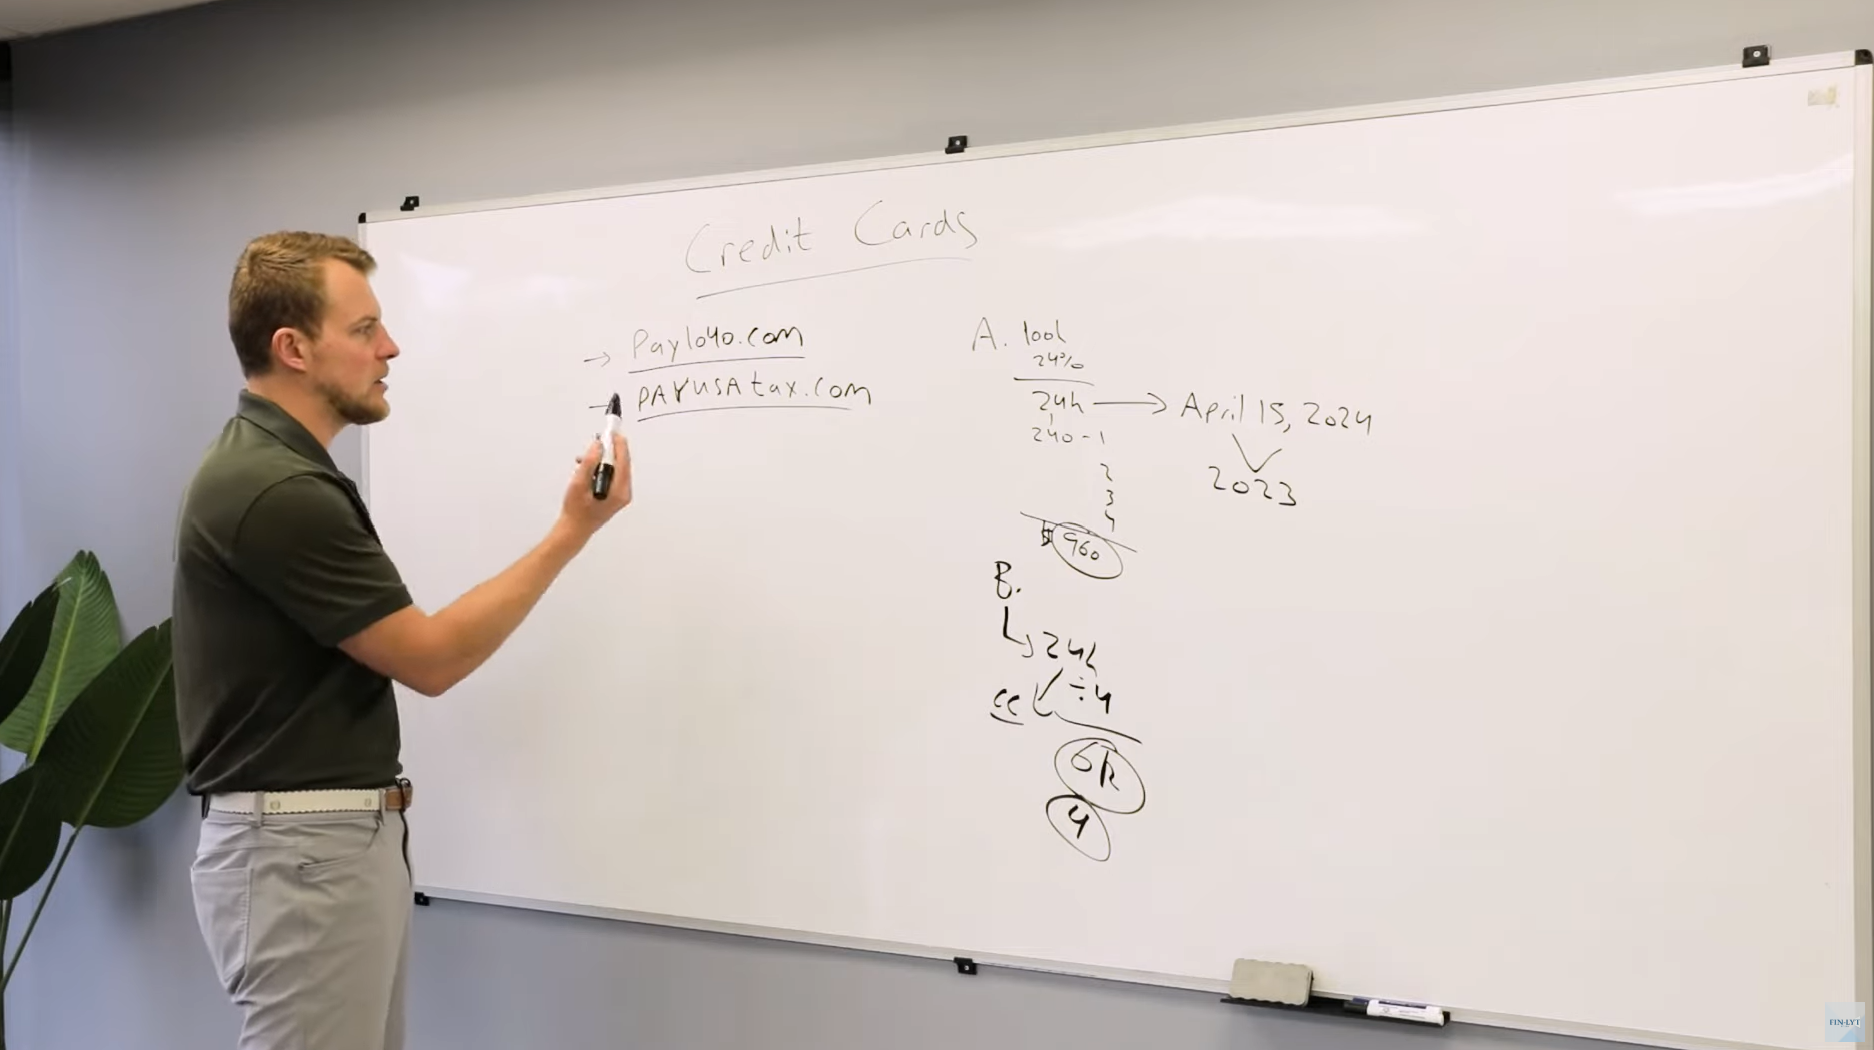 Credit Cards
→ Pay1040.com
→ PAYUSAtax.com
A. 100k
24%
24k → April 15, 2024
2023
240 - 1
2
3
4
$960
B.
24k
cc ÷ 4
6k
4
FIN-LYT